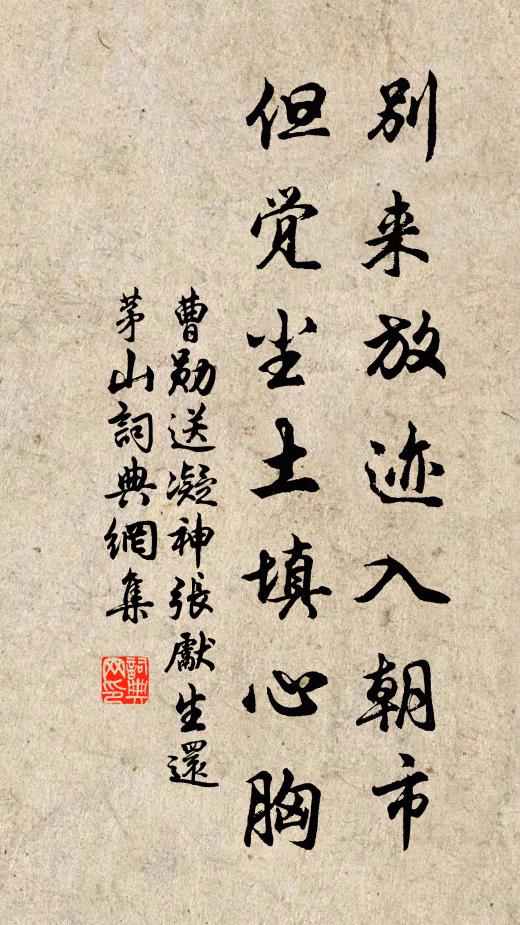 别来放迹入朝市
但觉尘土填心胸
曹勋送凝神張獻生還
茅山詞典網集
詞典网印